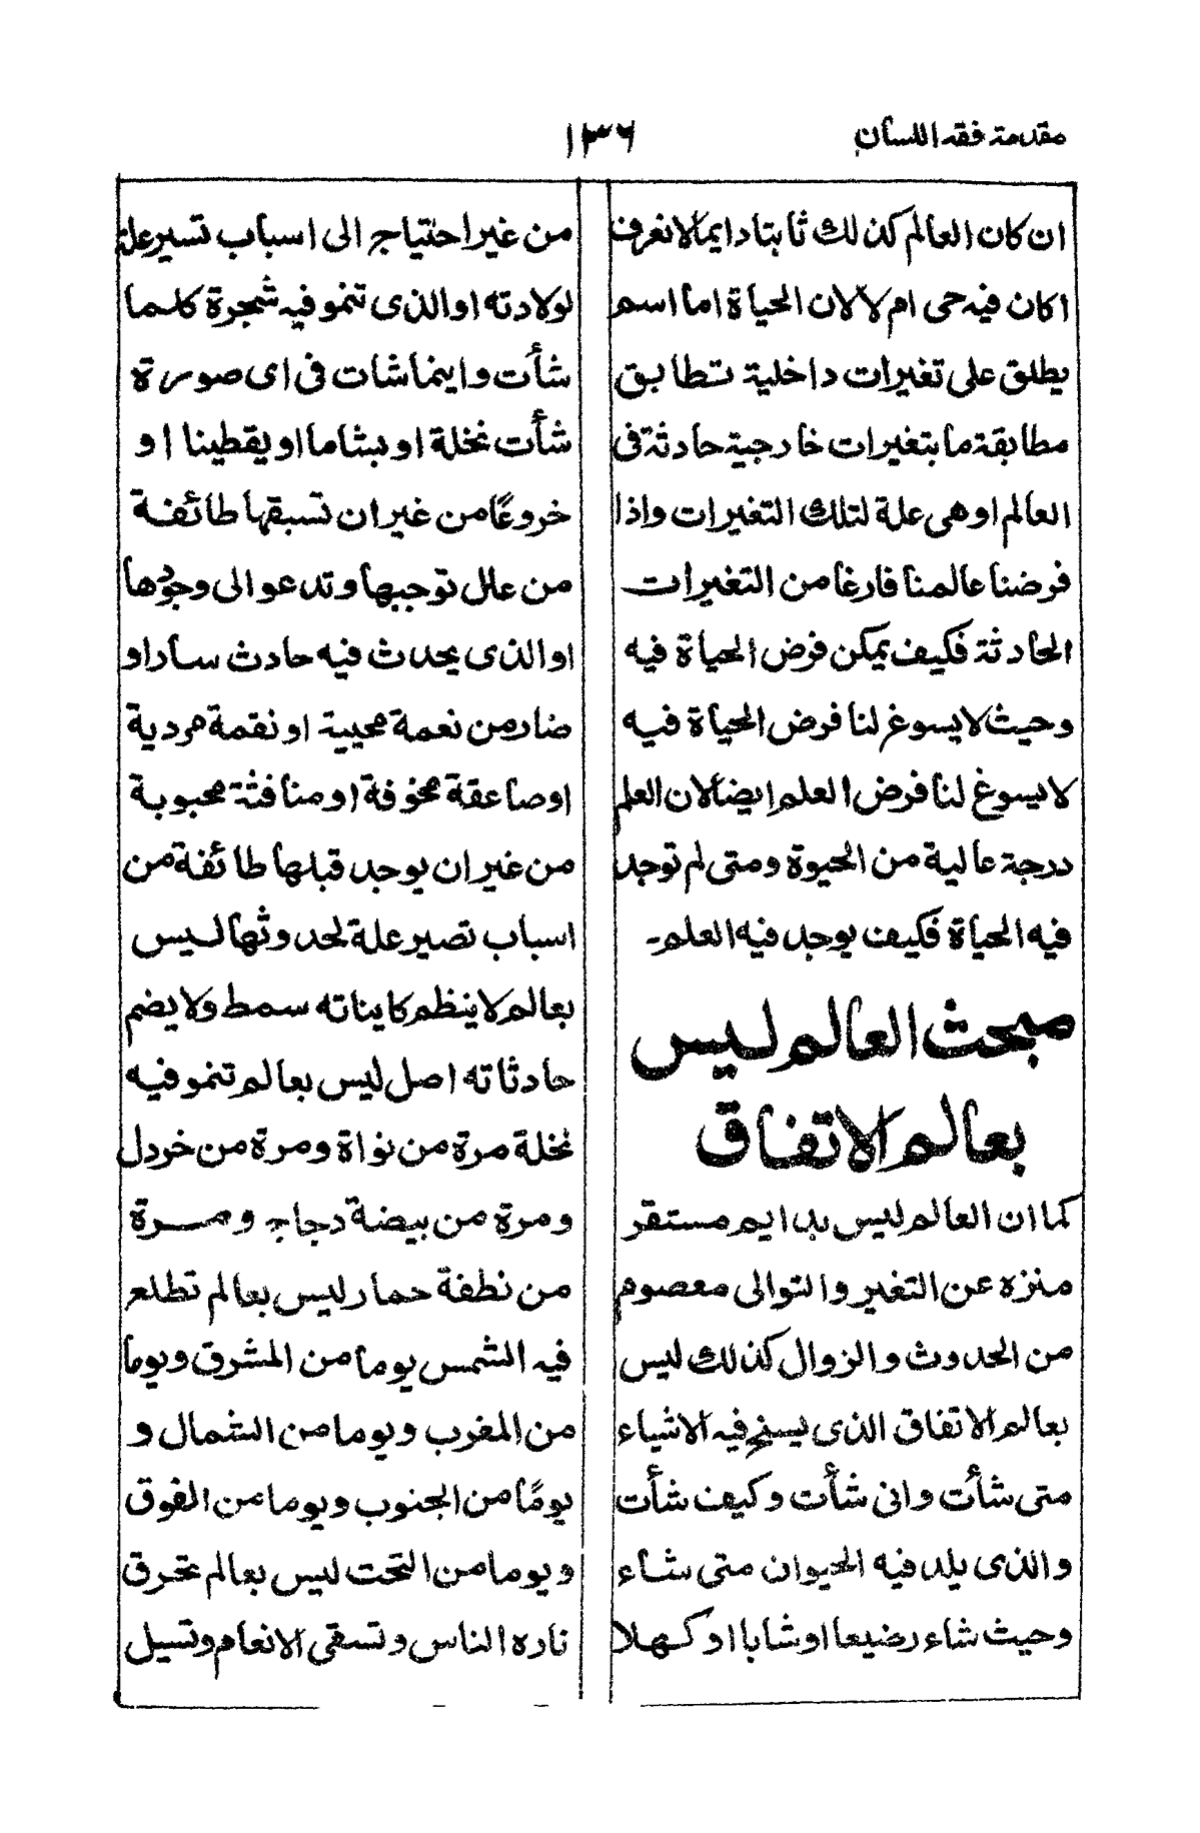 مقدمة فقه اللسان
١٣٦
ان كان العالم كذلك ثابتا دايما لا نعرف
اكان فيه حى ام لا لان الحياة اما اسم
يطلق على تغيرات داخلية تطابق
مطابقة ما بتغيرات خارجية حادثة فى
العالم او هى علة لتلك التغيرات واذا
فرضنا عالمنا فارغا من التغيرات
الحادثة فكيف يمكن فرض الحياة فيه
وحيث لا يسوغ لنا فرض الحياة فيه
لا يسوغ لنا فرض العلم ايضا لان العلم
درجة عالية من الحيوة ومتى لم توجد
فيه الحياة فكيف يوجد فيه العلم۔
مبحث العالم ليس
بعالم الاتفاق
كما ان العالم ليس بدايم مستقر
منزه عن التغير والتوالى معصوم
من الحدوث والزوال كذلك ليس
بعالم الاتفاق الذى يسنح فيه الاشياء
متى شأت وانى شأت وكيف شأت
والذى يلد فيه الحيوان متى شاء
وحيث شاء رضيعا او شابا او كهلا
من غير احتياج الى اسباب تسير علة
لولادته او الذى تنمو فيه شجرة كلما
شأت واينما شات فى اى صورة
شأت نخلة او بشاما او يقطينا او
خروعًا من غير ان تسبقها طائفة
من علل توجبها وتدعو الى وجودها
او الذى يحدث فيه حادث سار او
ضار من نعمة محيية او نقمة مردية
او صاعقة مخوفة او منافثة محبوبة
من غير ان يوجد قبلها طائفة من
اسباب تصير علة لحدوثها ليس
بعالم لا ينظم كايناته سمط ولا يضم
حادثاته اصل ليس بعالم تنمو فيه
نخلة مرة من نواة ومرة من خردل
ومرة من بيضة دجاج ومرة
من نطفة حمار ليس بعالم تطلع
فيه الشمس يوما من المشرق ويوما
من المغرب ويوما من الشمال و
يومًا من الجنوب ويوما من الفوق
ويوما من التحت ليس بعالم تحرق
ناره الناس وتسقى الانعام وتسيل